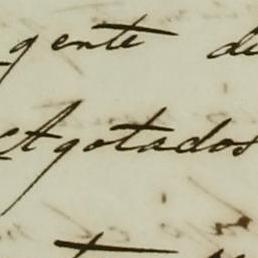 gente de
Agotados